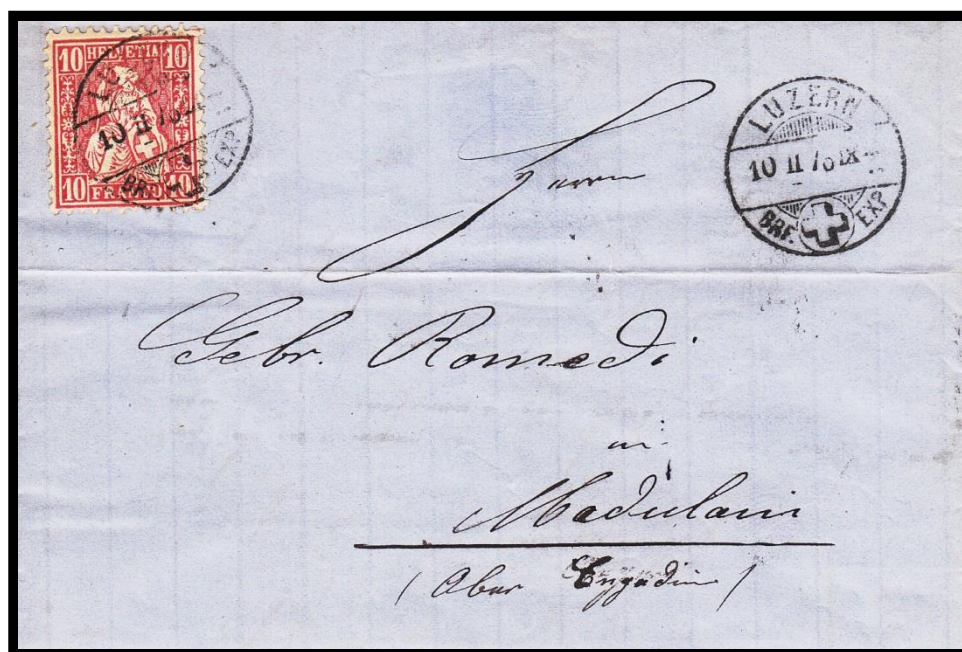 10 HELVETIA 10
10 FRANCO 10
LUZERN
10 II
BRF. EXP
LUZERN
10 II IX
BRF. EXP.
Herren
Gebr. Romedi
in
Madulein
(Ober Engadin)